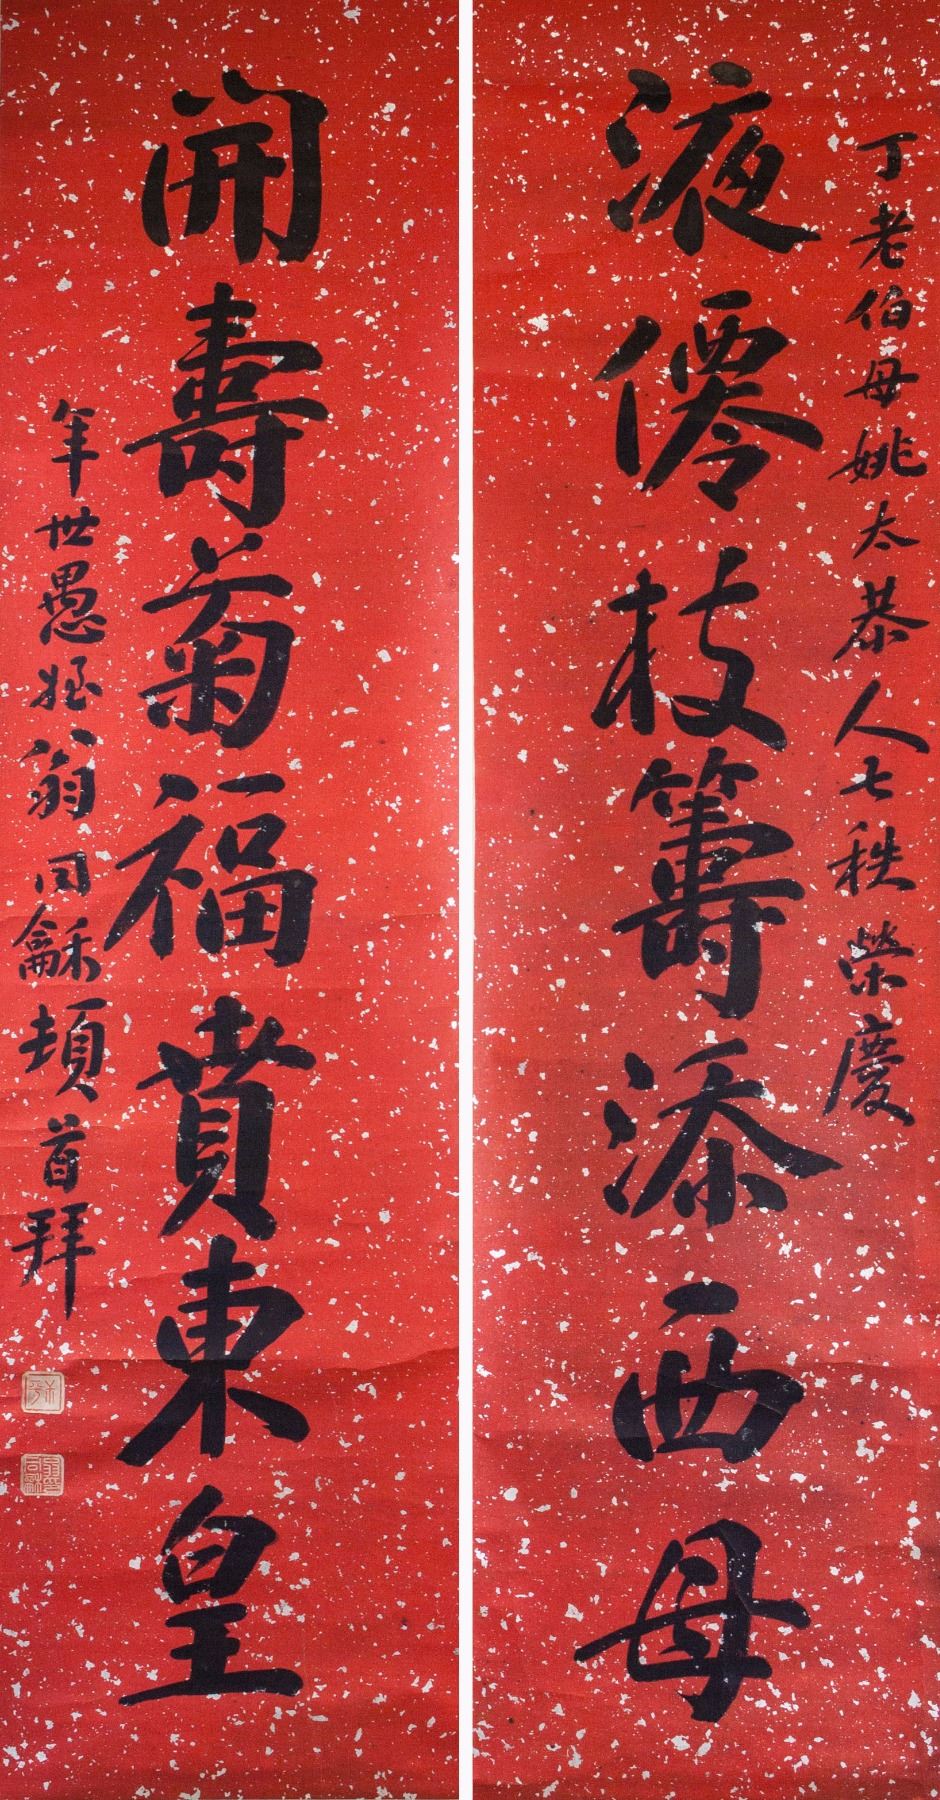 丁老伯母姚太恭人七秩榮慶
液僊枝籌添西母
開壽菊福賁東皇
年世愚姪翁同龢頓首拜
叔平
翁同龢印